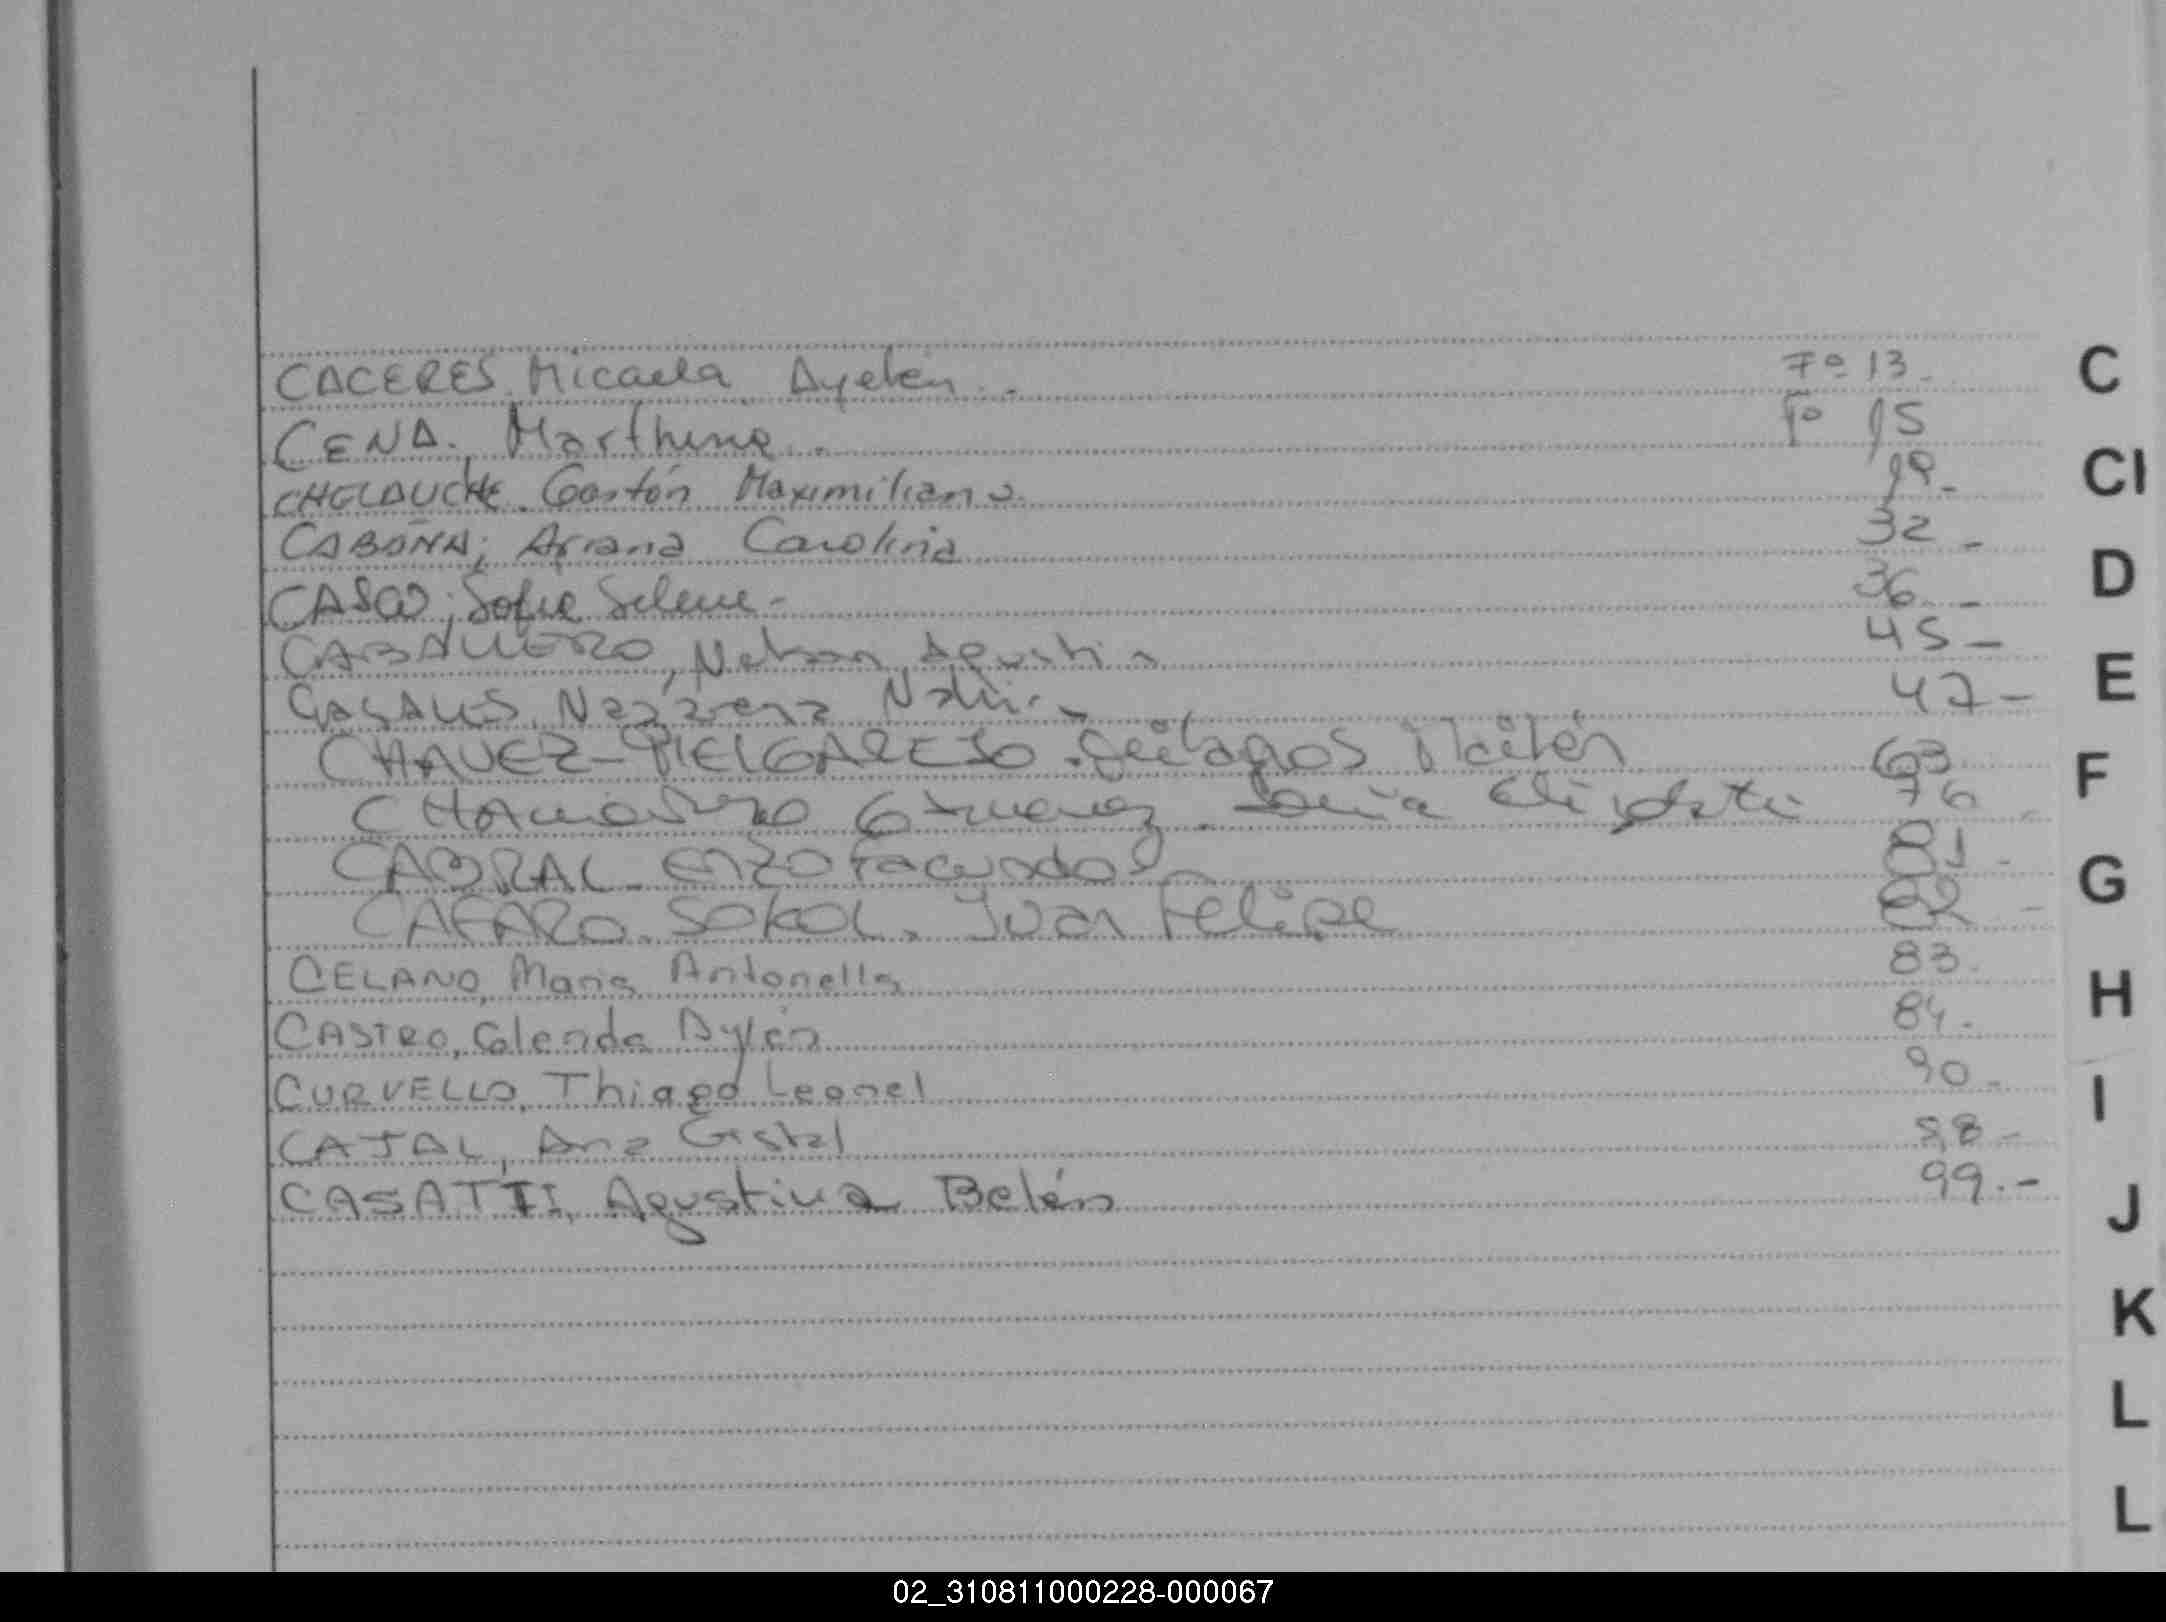 CACERES, Micaela Ayelen.- Fº 13.-
CENA, Marthina.- Fº 15
CHELAUCHE, Gastón Maximiliano 19.-
CABAÑA, Ariana Carolina 32.-
CASCO, Sofia Selene.- 36.-
CABALLERO, Nelson Agustin 45-
CASALIS, Nazarena 47-
CHAVEZ- Milagros Mailén 63
76
CABRAL Enzo Facundo 81.-
CAFARO SOKOL, Ivan Felipe 82.-
CELANO, Maria Antonella 83.
CASTRO, Glenda Aylén 84.-
CURVELLO, Thiago Leonel 90.-
CAJAL, Ana Cristal 98.-
CASATTI, Agustina Belén 99.-
C
CI
D
E
F
G
H
I
J
K
L
L
02_310811000228-000067